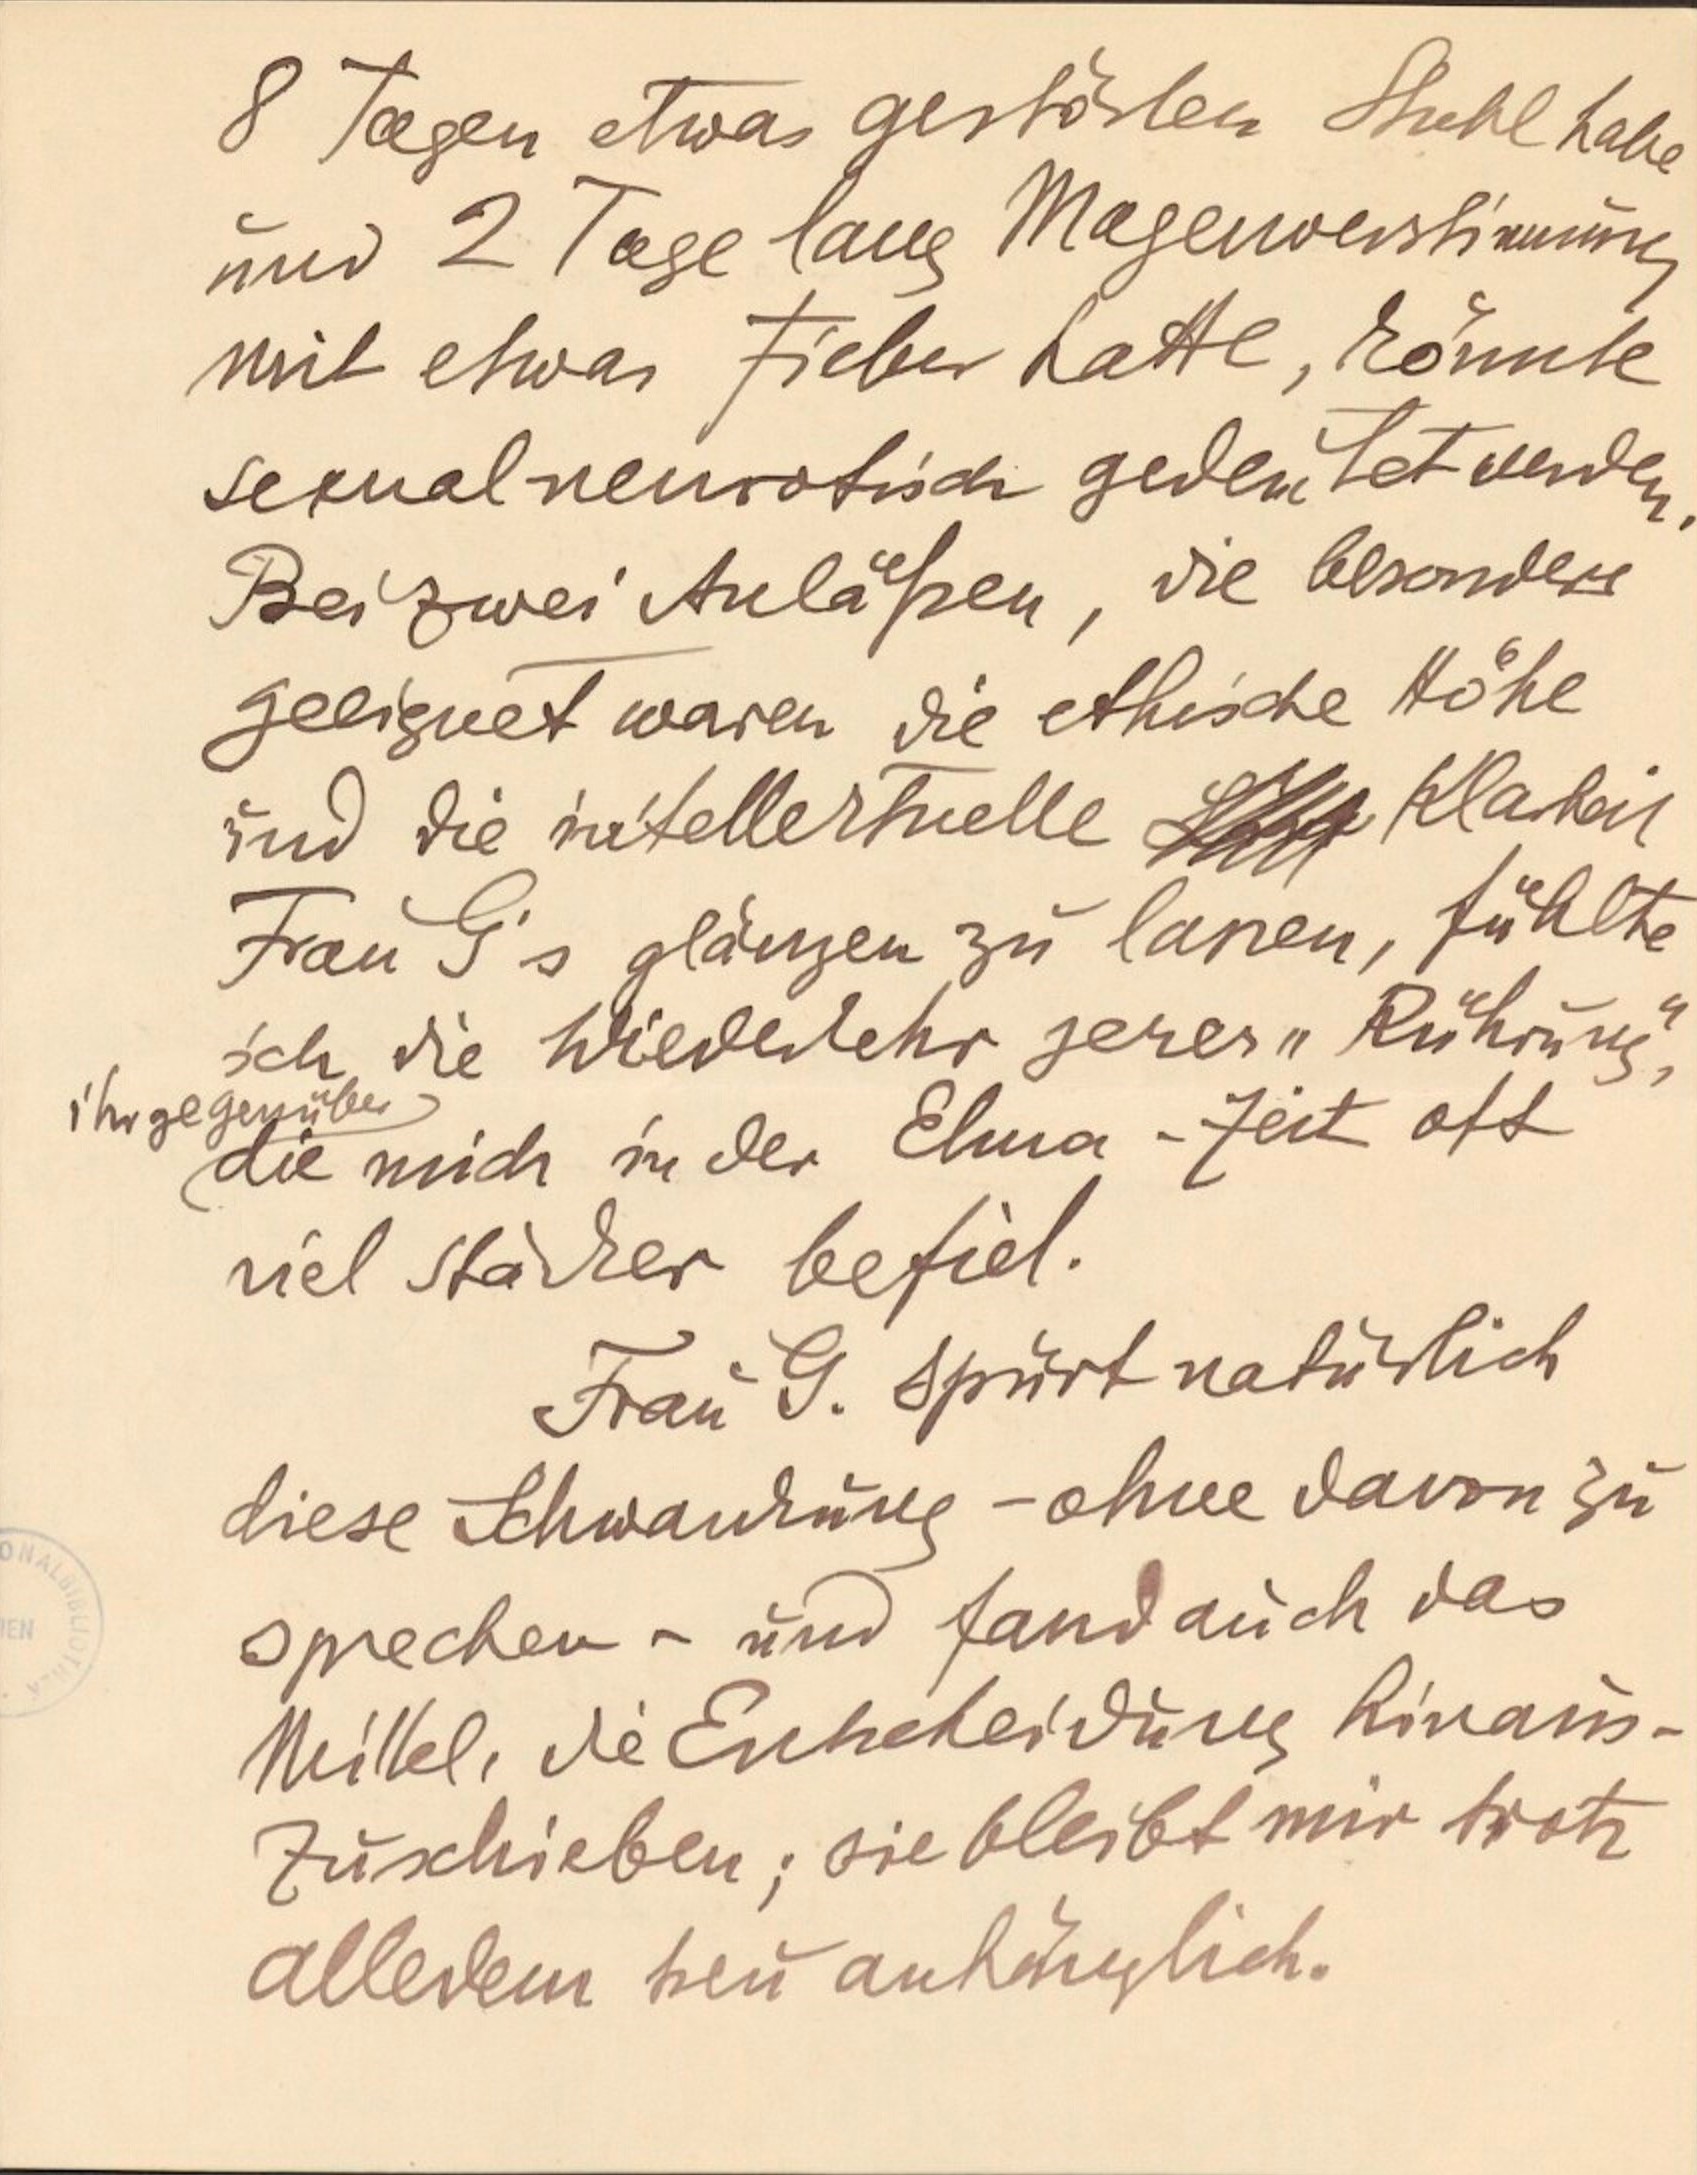 8 Tagen etwas gestörten Stuhl habe
und 2 Tage lang Magenverstimmung
mit etwas Fieber hatte, könnte
sexualneurotisch gedeutet werden.
Bei zwei Anläßen, die besonders
geeignet waren die ethische Höhe
und die intellektuelle Klarheit
Frau G's glänzen zu lassen, fühlte
ich die Wiederkehr jener „Rührung",
ihr gegenüber
die mich in der Elma-Zeit oft
viel stärker befiel.
Frau G. spürt natürlich
diese Schwankung – ohne davon zu
sprechen – und fand auch das
Mittel, die Entscheidung hinaus-
zuschieben; sie bleibt mir trotz
alledem treu anhänglich.
ONALBIBLIOTHEK
IEN